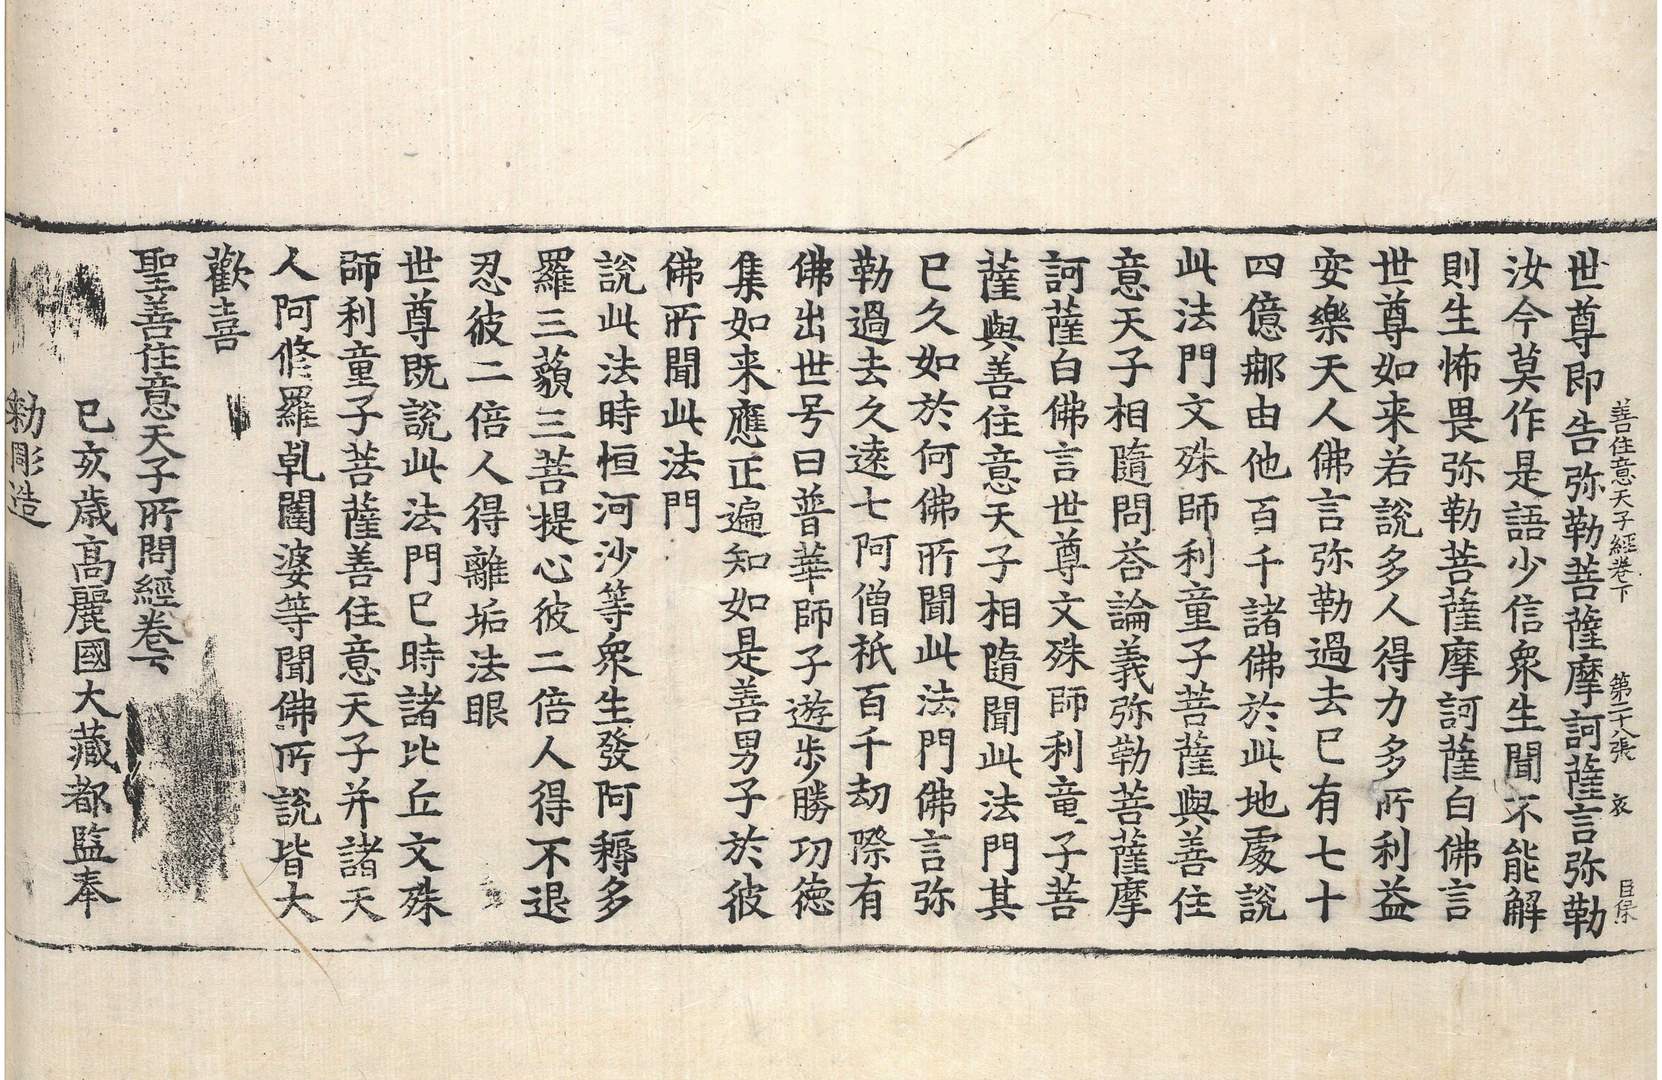 善住意天子經卷下 第二十八張 哀
世尊即告弥勒菩薩摩訶薩言弥勒
汝今莫作是語少信衆生聞不能解
則生怖畏弥勒菩薩摩訶薩白佛言
世尊如来若說多人得力多所利益
安樂天人佛言弥勒過去已有七十
四億那由他百千諸佛於此地處說
此法門文殊師利童子菩薩與善住
意天子相隨問荅論義弥勒菩薩摩
訶薩白佛言世尊文殊師利童子菩
薩與善住意天子相隨聞此法門其
已久如於何佛所聞此法門佛言弥
勒過去久遠七阿僧祇百千劫際有
佛出世号曰普華師子遊步勝功徳
集如来應正遍知如是善男子於彼
佛所聞此法門
說此法時恒河沙等衆生發阿耨多
羅三藐三菩提心彼二倍人得不退
忍彼二倍人得離垢法眼
世尊既說此法門已時諸比丘文殊
師利童子菩薩善住意天子并諸天
人阿脩羅乹闥婆等聞佛所說皆大
歡喜
聖善住意天子所問經卷下
己亥歲高麗國大藏都監奉
勑彫造